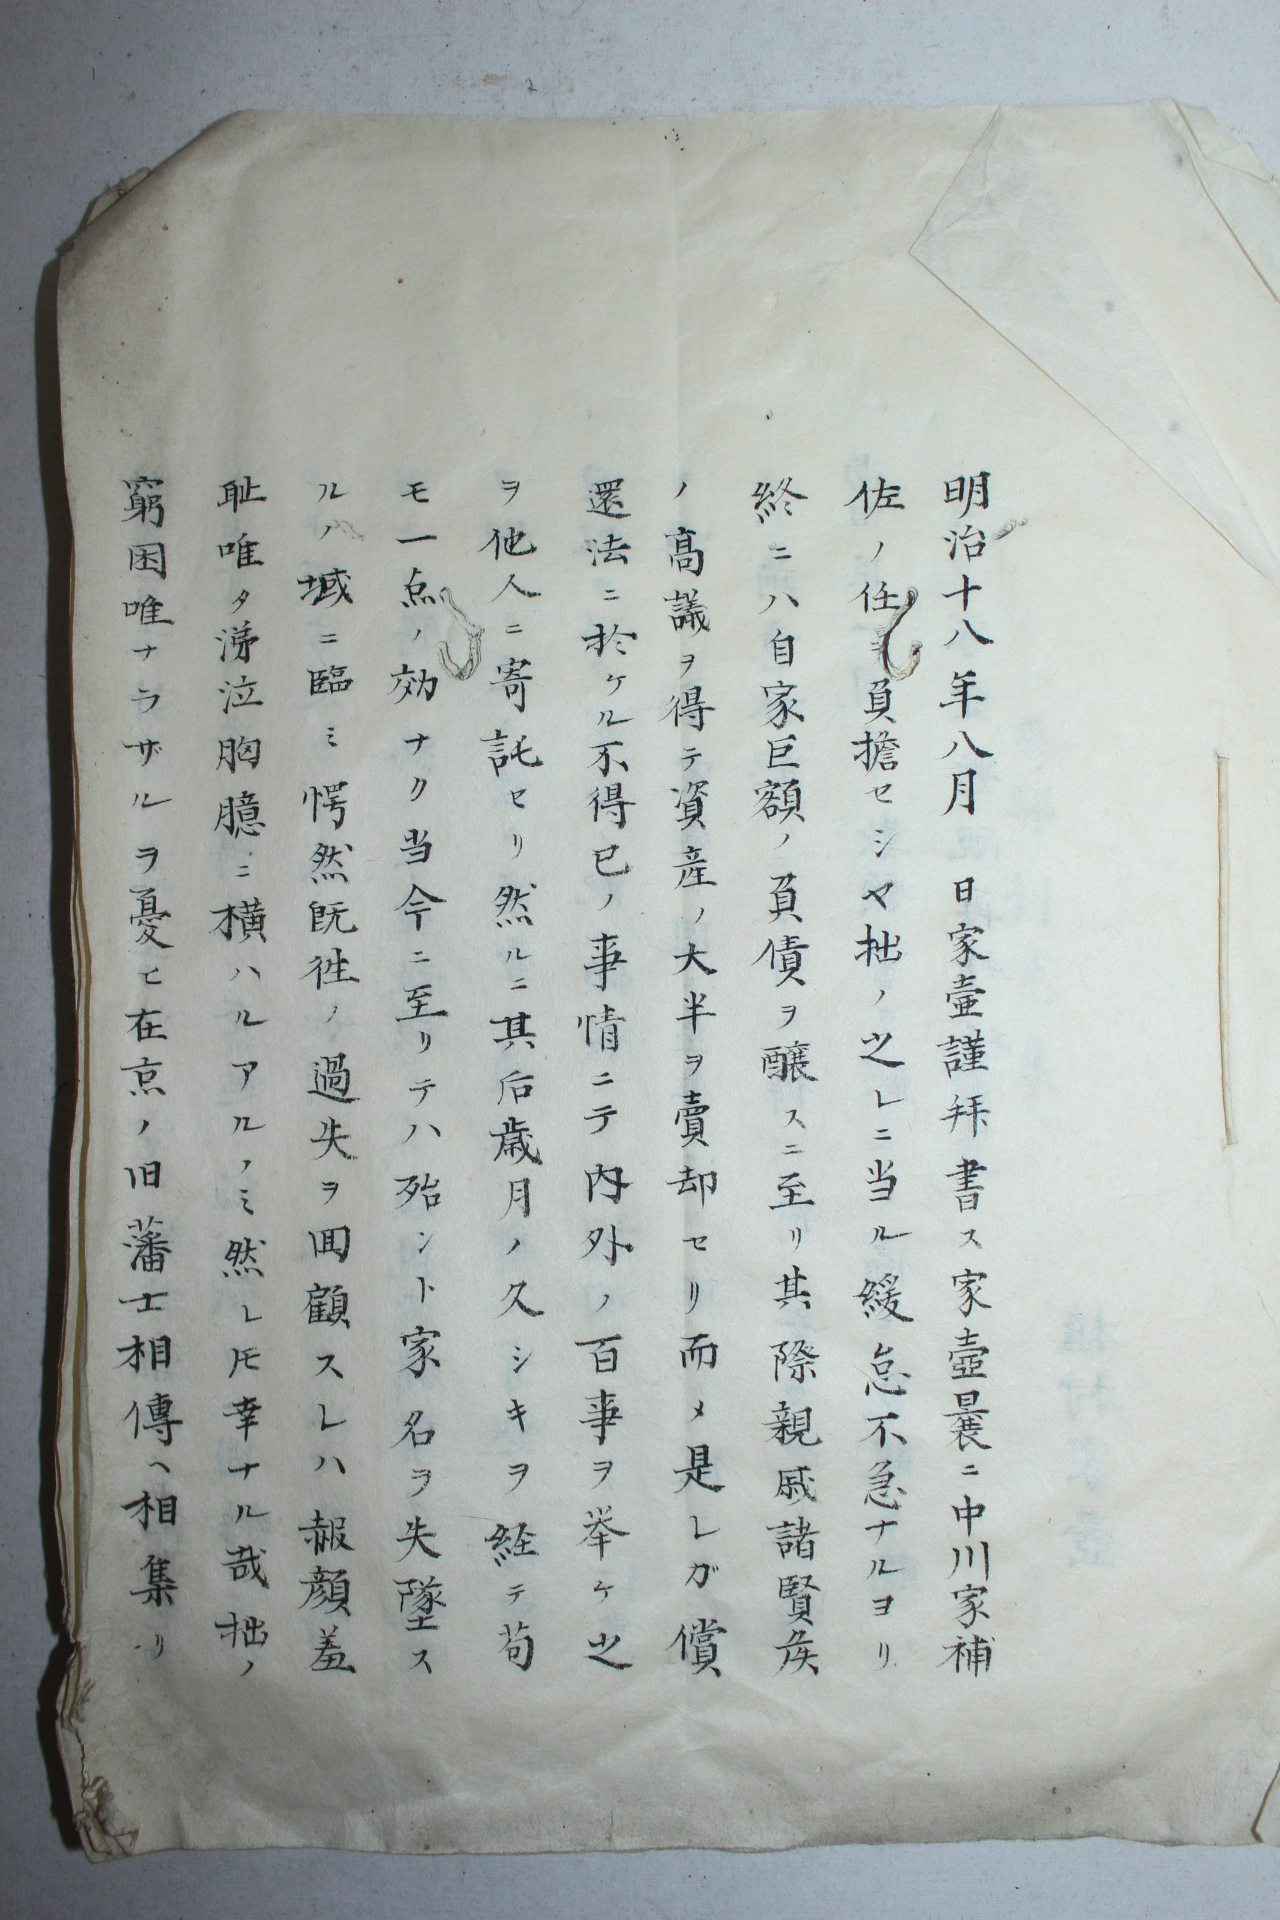 明治十八年八月　日家壷謹拜書ス家壷曩ニ中川家補
佐ノ任ヲ負擔セシヤ拙ノ之レニ当ル緩怠不急ナルヨリ
終ニハ自家巨額ノ負債ヲ醸スニ至リ其際親戚諸賢矦
ノ高議ヲ得テ資産ノ大半ヲ賣却セリ而メ是レガ償
還法ニ於ケル不得已ノ事情ニテ内外ノ百事ヲ挙ケ之
ヲ他人ニ寄託セリ然ルニ其后歳月ノ久シキヲ経テ苟
モ一点ノ効ナク当今ニ至リテハ殆ント家名ヲ失墜ス
ルノ域ニ臨ミ愕然既徃ノ過失ヲ囬顧スレハ赧顔羞
耻唯タ涕泣胸臆ニ横ハルアルノミ然レ𪜈幸ナル哉拙ノ
窮困唯ナラザルヲ憂ヒ在京ノ旧藩士相傳ヘ相集リ